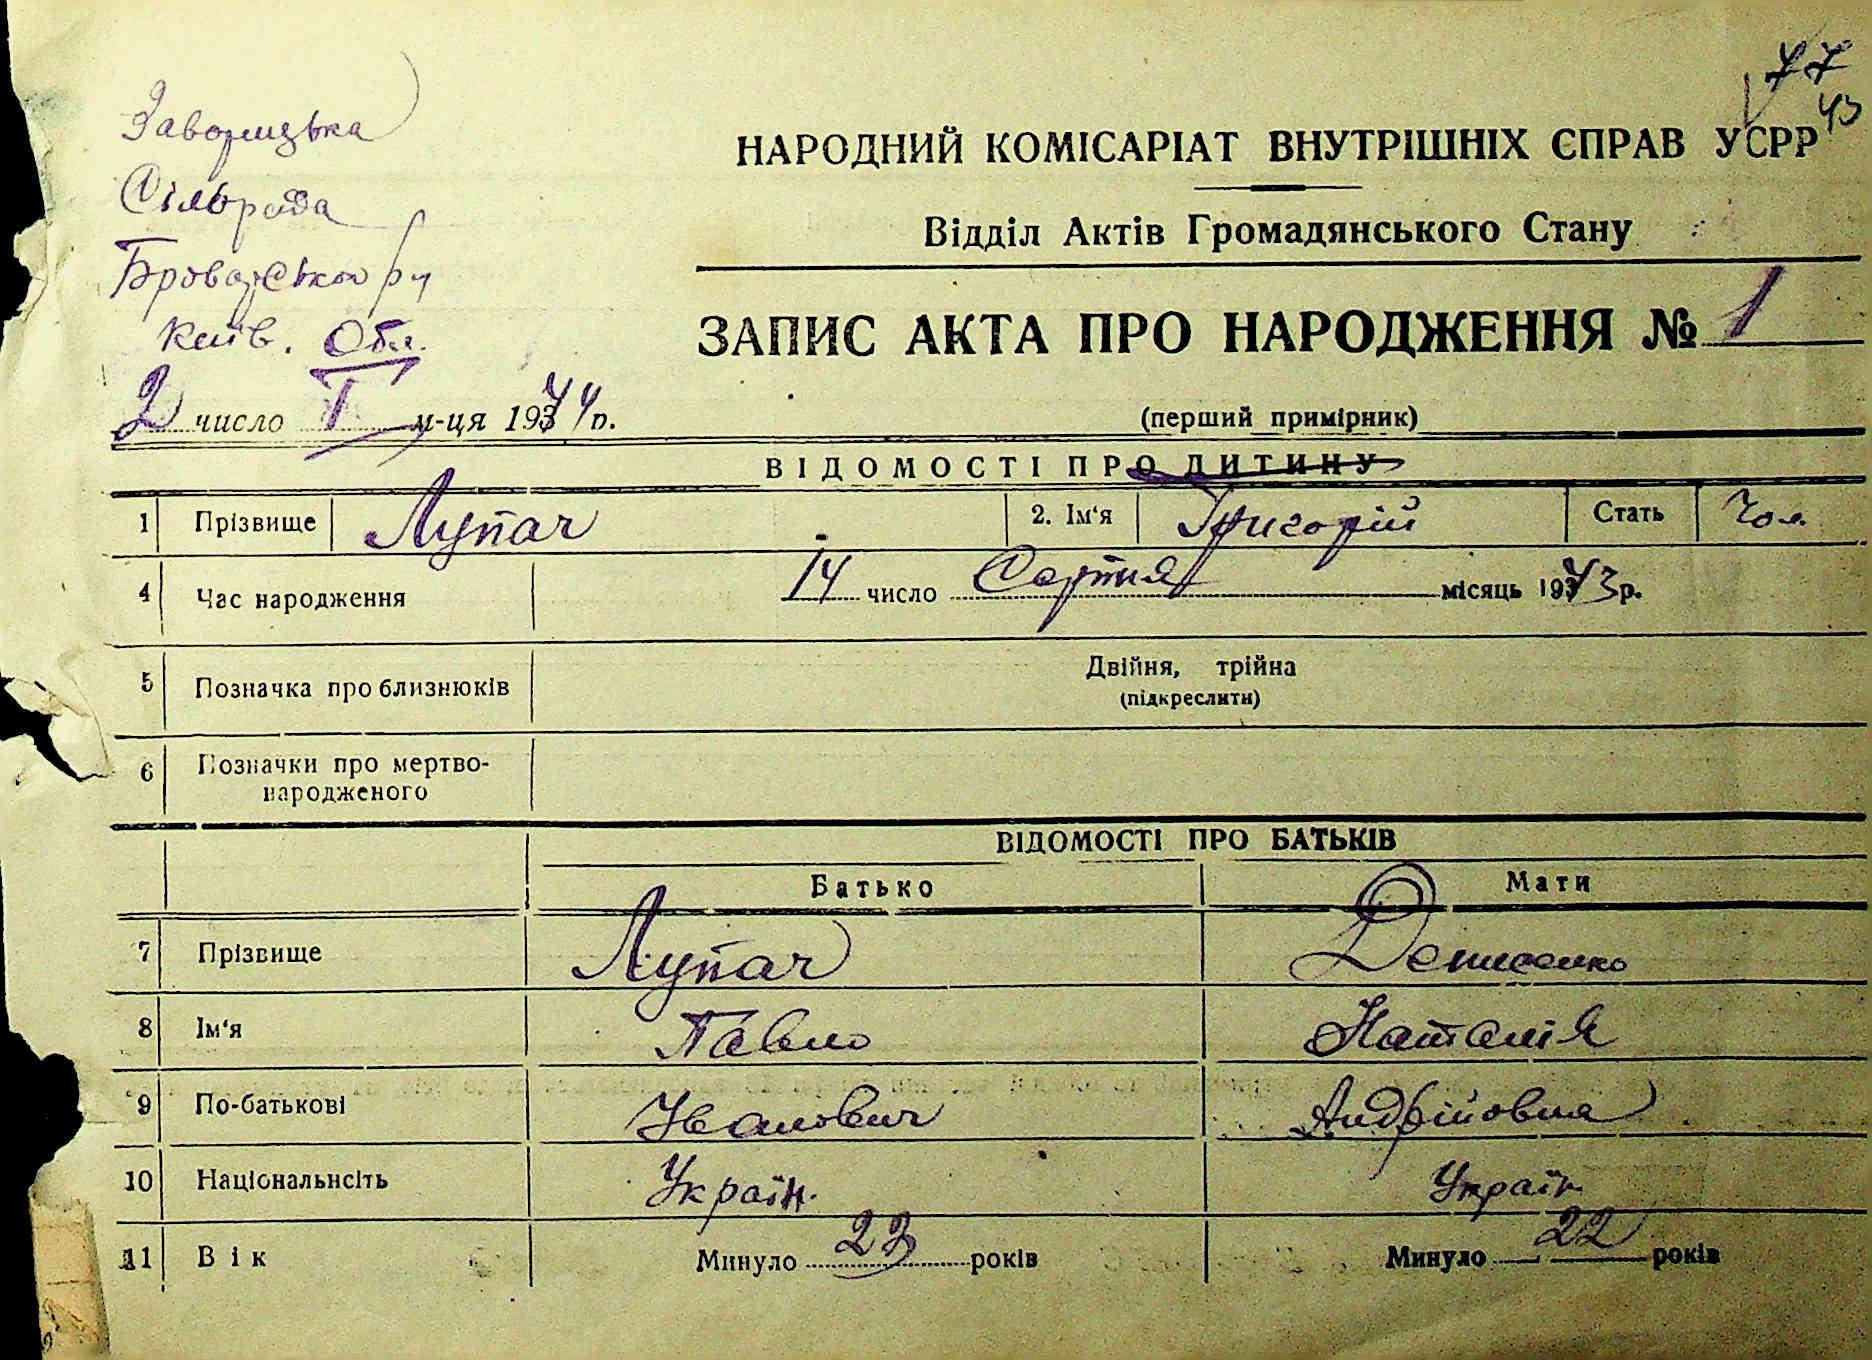 77
43
Заворицька
Сільрада
Броварського р-у
Київ. Обл.
НАРОДНИЙ КОМІСАРІАТ ВНУТРІШНІХ СПРАВ УСРР
Відділ Актів Громадянського Стану
ЗАПИС АКТА ПРО НАРОДЖЕННЯ № 1
2 число I м-ця 1944 р.
(перший примірник)
ВІДОМОСТІ ПРО ДИТИНУ
1 Прізвище Лупач 2. Ім'я Григорій Стать Чол.
4 Час народження 14 число Серпня місяць 1943 р.
5 Позначка про близнюків Двійня, трійна
(підкреслити)
6 Позначки про мертво-
народженого
ВІДОМОСТІ ПРО БАТЬКІВ
Батько Мати
7 Прізвище Лупач Денисенко
8 Ім'я Павло Наталія
9 По-батькові Іванович Андрійовна
10 Національнсіть Україн. Україн
11 Вік Минуло 23 років Минуло 22 років